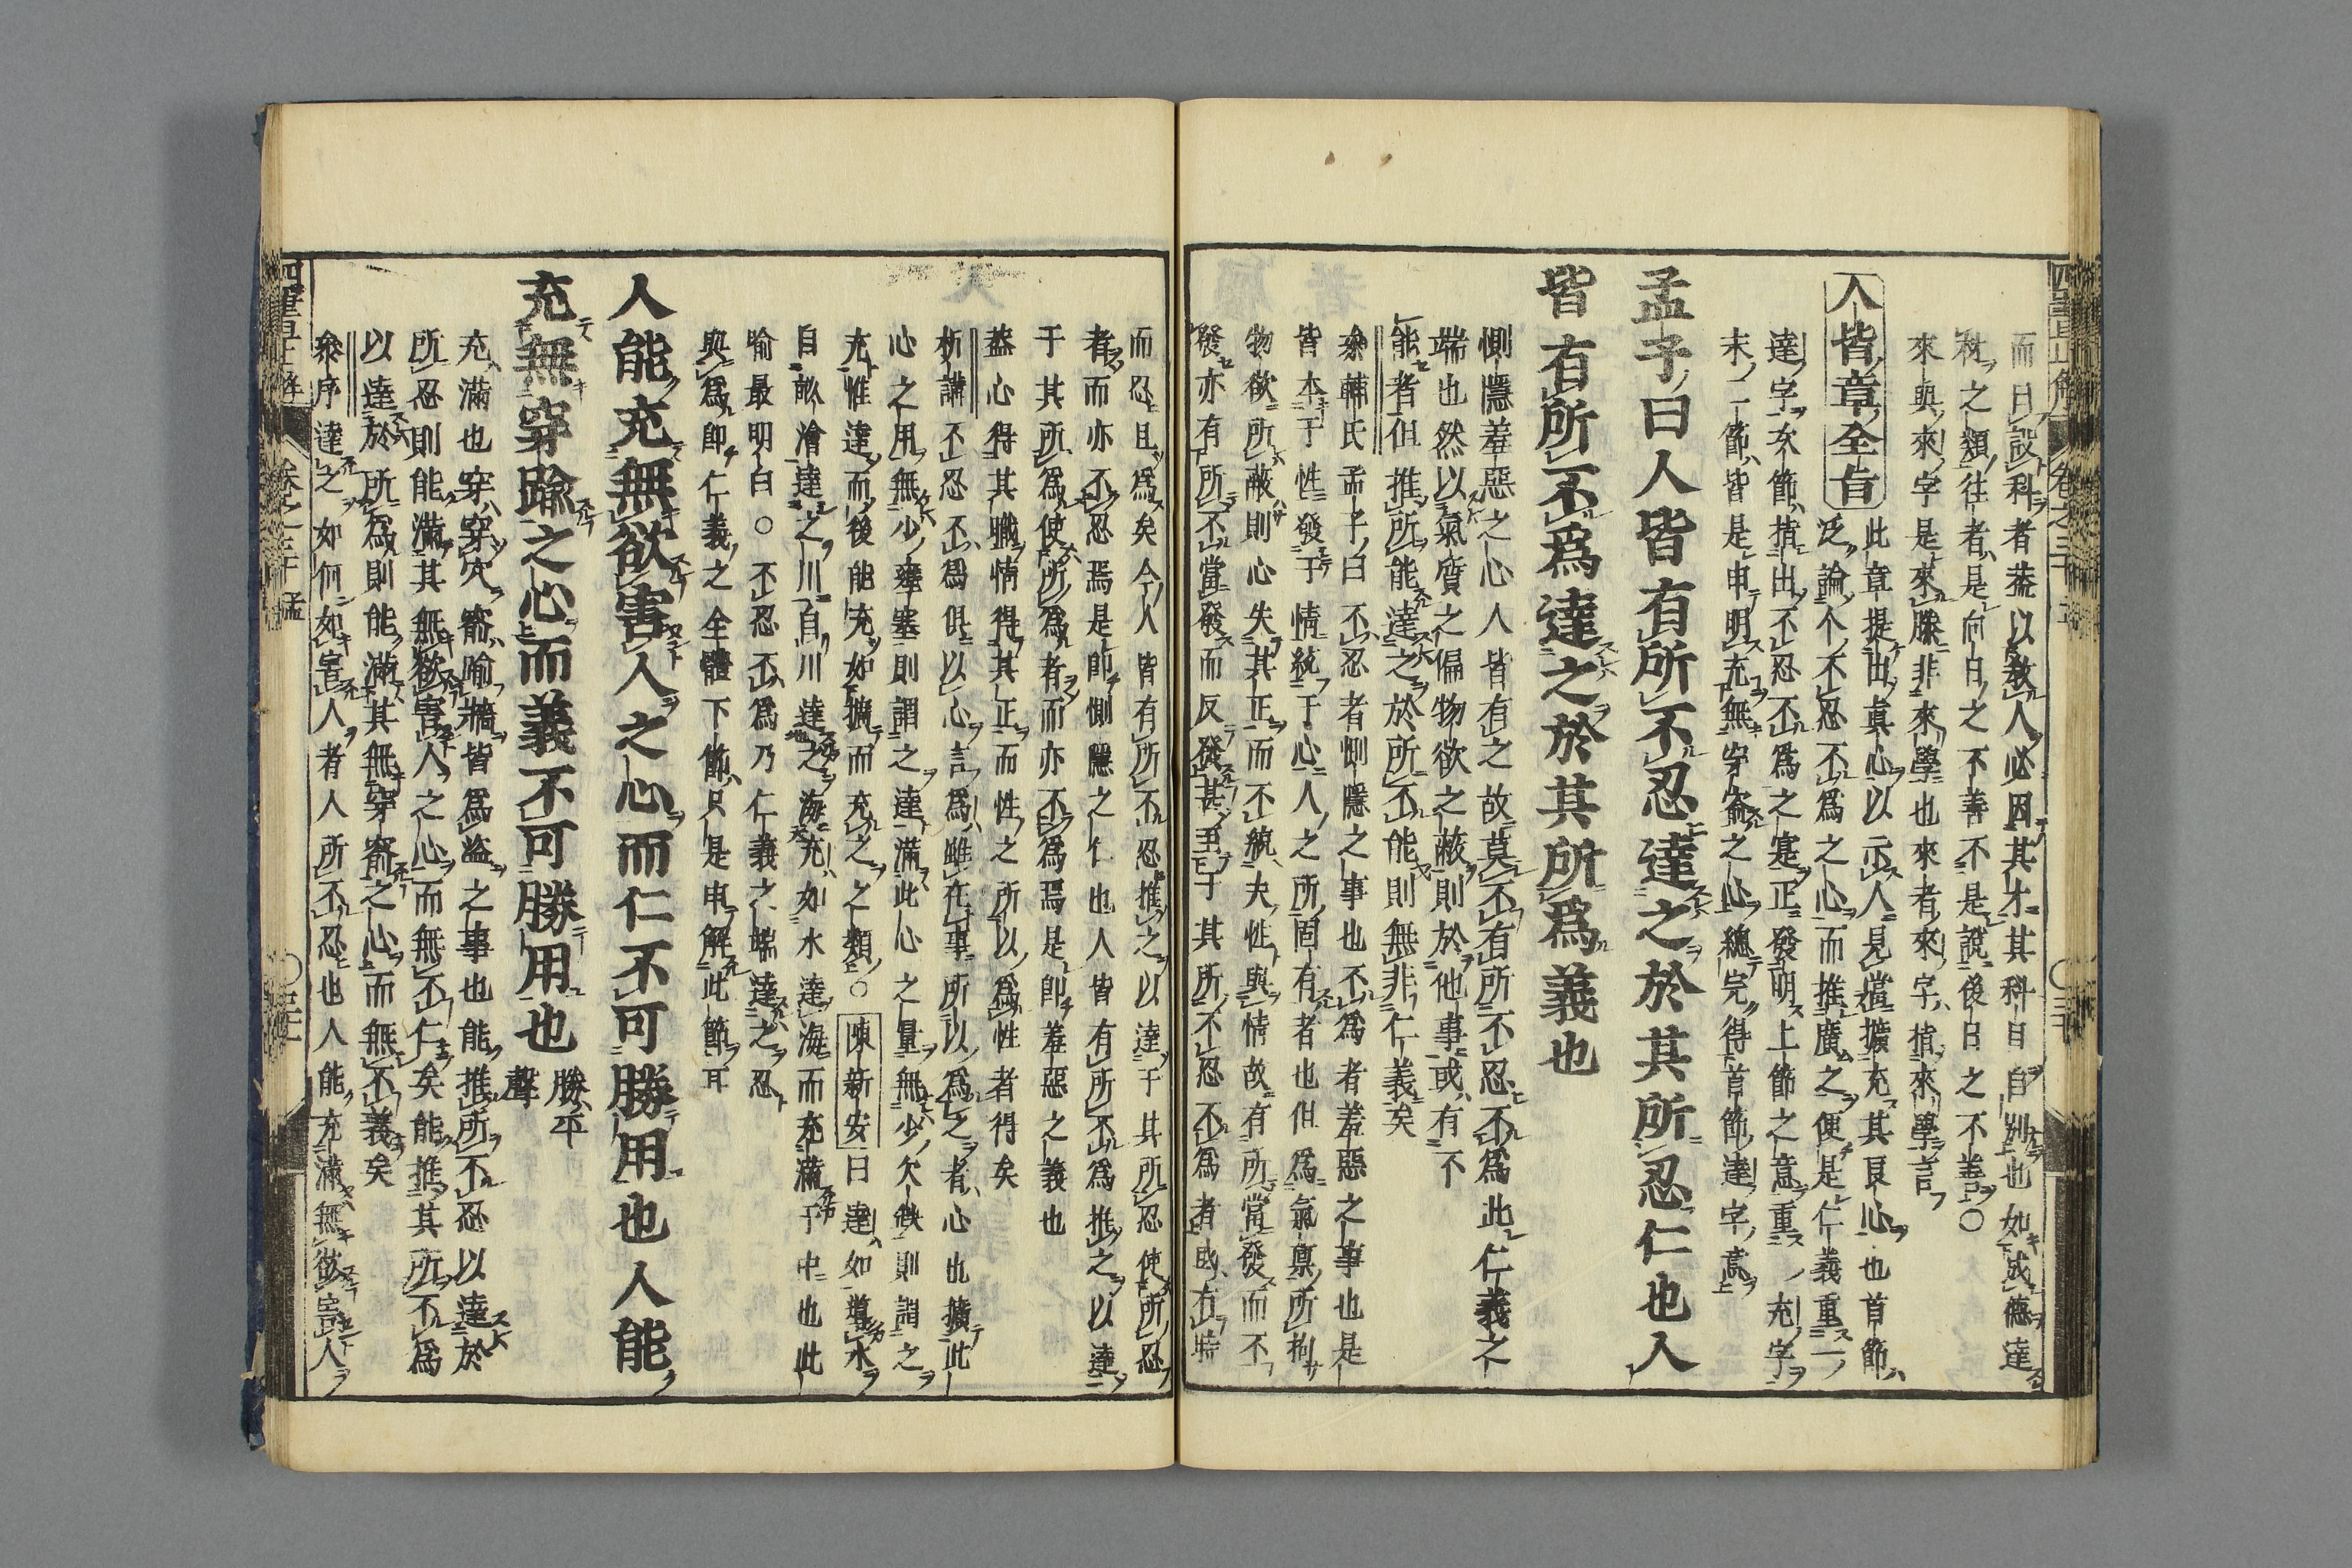 而曰設科者蓋以敎人必因其才其科目自別也如成德達
材之類往者是向日之不善不是說後日之不善○
來與來字是來隲非來學也來者來字指來學言
人皆章全旨
此章提出眞心以示人見當擴充其良心也首節
泛論个不忍不爲之心而推廣之便是仁義重一
達字次節指出不忍不爲之寔正發明上節之意重充字
末二節皆是申明充無穿窬之心總完得首節達字意
孟子曰人皆有所不忍達之於其所忍仁也人
皆有所不爲達之於其所爲義也
惻隱羞惡之心人皆有之故莫不有所不忍不爲此仁義之
端也然以氣質之偏物欲之蔽則於他事或有不
能者但推所能達之於所不能則無非仁義矣
叅輔氏孟子曰不忍者惻隱之事也不爲者羞惡之事也是
皆本于性發于情統于心人之所固有者也但爲氣禀所拘
物欲所蔽則心失其正而不統夫性與情故有所當發而不
發亦有所不當發而反發甚至于其所不忍不爲者或有時
而忍且爲矣今人皆有所不忍推之以達于其所忍使所忍
者而亦不忍焉是卽惻隱之仁也人皆有所不爲推之以達
于其所爲使所爲者而亦不爲焉是卽羞惡之義也
蓋心得其職情得其正而性之所以爲性者得矣
析講不忍不爲俱以心言爲雖在事所以爲之者心也擴此
心之用無少壅塞則謂之達滿此心之量無少欠缺則謂之
充惟達而後能充如擴而充之之類○陳新安曰達如導水
自畎澮達之川自川達之海充如水達海而充滿于中也此
喻最明白○不忍不爲乃仁義之端達之忍
與爲卽仁義之全體下節只是申解此節耳
人能充無欲害人之心而仁不可勝用也人能
充無穿踰之心而義不可勝用也勝平聲
充滿也穿穿穴窬踰牆皆爲盜之事也能推所不忍以達於
所忍則能滿其無欲害人之心而無不仁矣能推其所不爲
以達於所爲則能滿其無穿窬之心而無不義矣
叅序達之如何如害人者人所不忍也人能充滿無欲害人